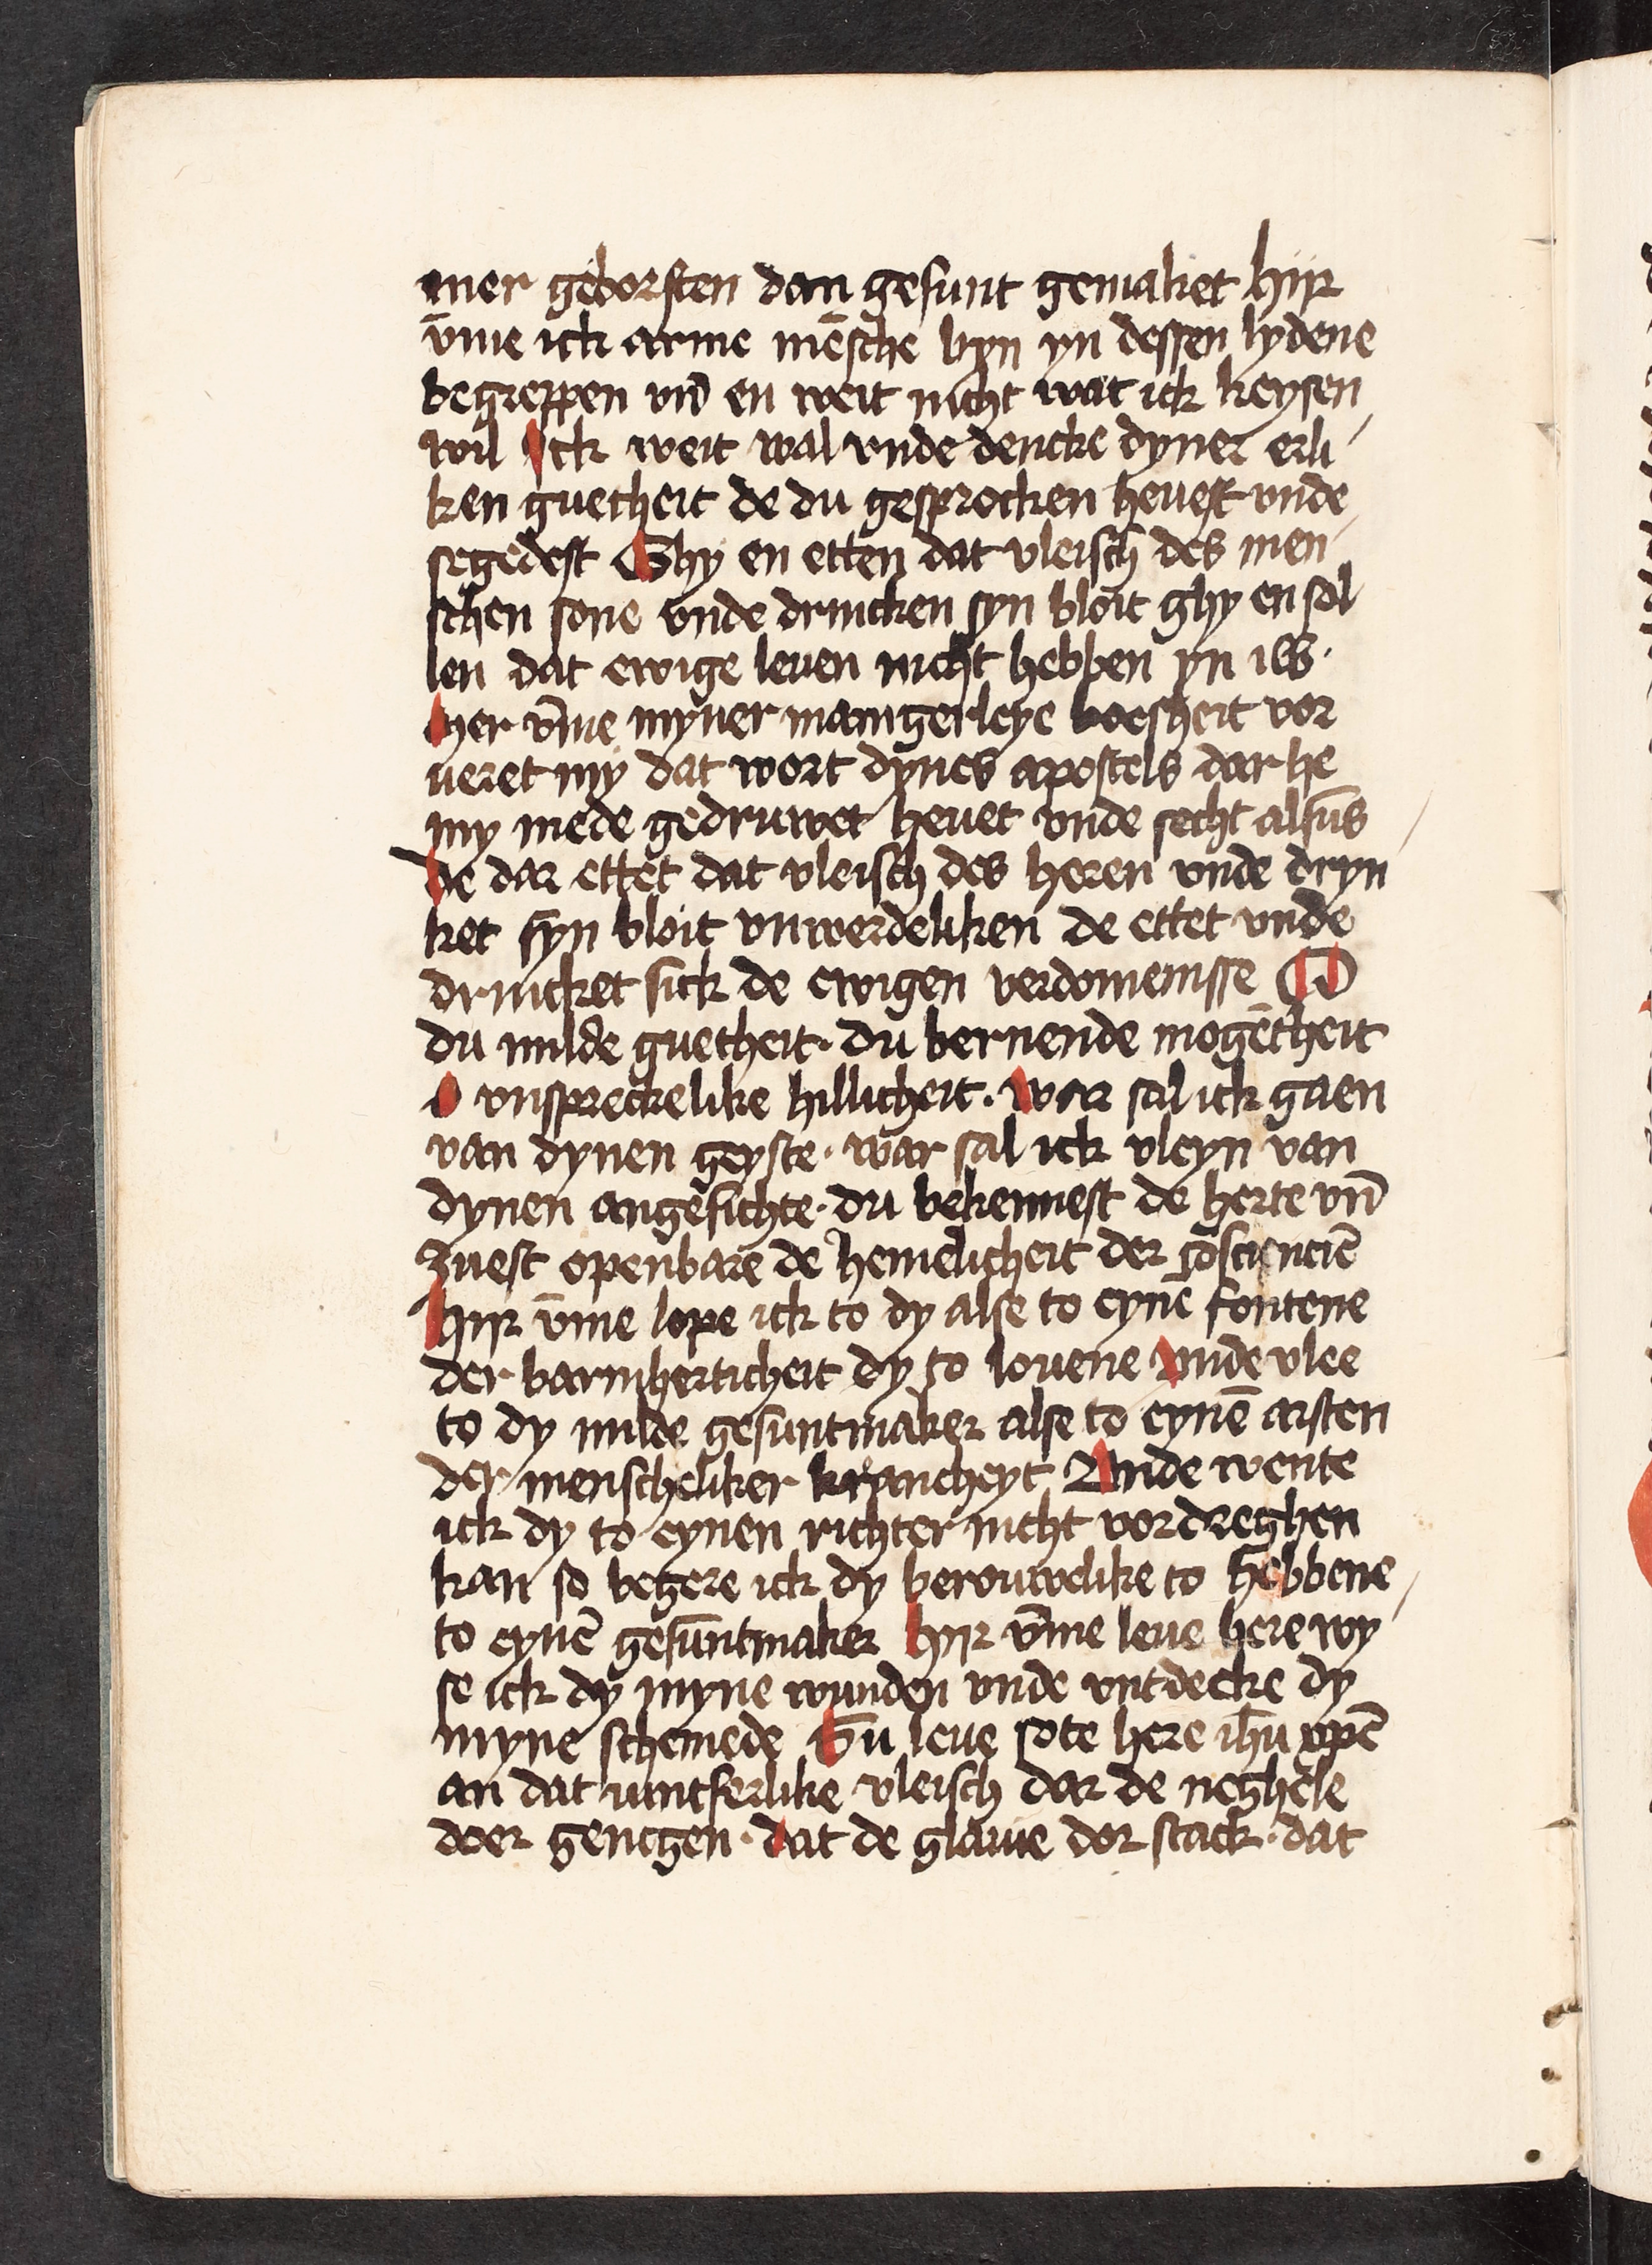 mer geborsten dan gesunt gemaket hijr
v̄me ick arme mēsche byn yn dessen lydene
begreppen vn̄ en weit nicht wat ick keysen
wil Ick weit wal vnde dencke dyner erli
ken guetheit de du gesprocken heuest vnde
segedest Ghy en etten dat vleisch des men
schen sone vnde drincken syn bloit ghy en sol
len dat ewige leuen nicht hebben yn iw.
Her v̄me myner manigerleye boesheit vor
ueret my dat wort dynes apostels dar he
my mede gedruwet heuet vnde secht alsūs
De dar ettet dat vleisch des heren vnde dryn
ket syn bloit vnwerdeliken de ettet vnde
drincket sick de ewigen verdomenisse O
du milde guetheit. du bernende mogētheit
O vnspreckelike hillicheit. War sal ick gaen
van dynen geyste. war sal ick vleyn van
dynen angesichte. du bekennest de herte vn̄
zuest openbare de hemelicheit der cōsciencīe
Hijr v̄me lope ick to dy alse to eynē fontene
der barmherticheit dy to louene Vnde vlee
to dy milde gesuntmaker alse to eynē arsten
der menscheliker krancheyt Vnde wente
ick dy to eynen richter nicht vordreghen
kan so begere ick dy berouwelike to hebbene
to eynē gesūntmaker Hijr v̄me leue here wy
se ick dy myne wunden vnde vntdecke dy
myne schemede Gu leue sote here ih̄u vpē
an dat iuncferlike vleisch dar de neghele
doer gengen. dat de glauie dor stack. dat